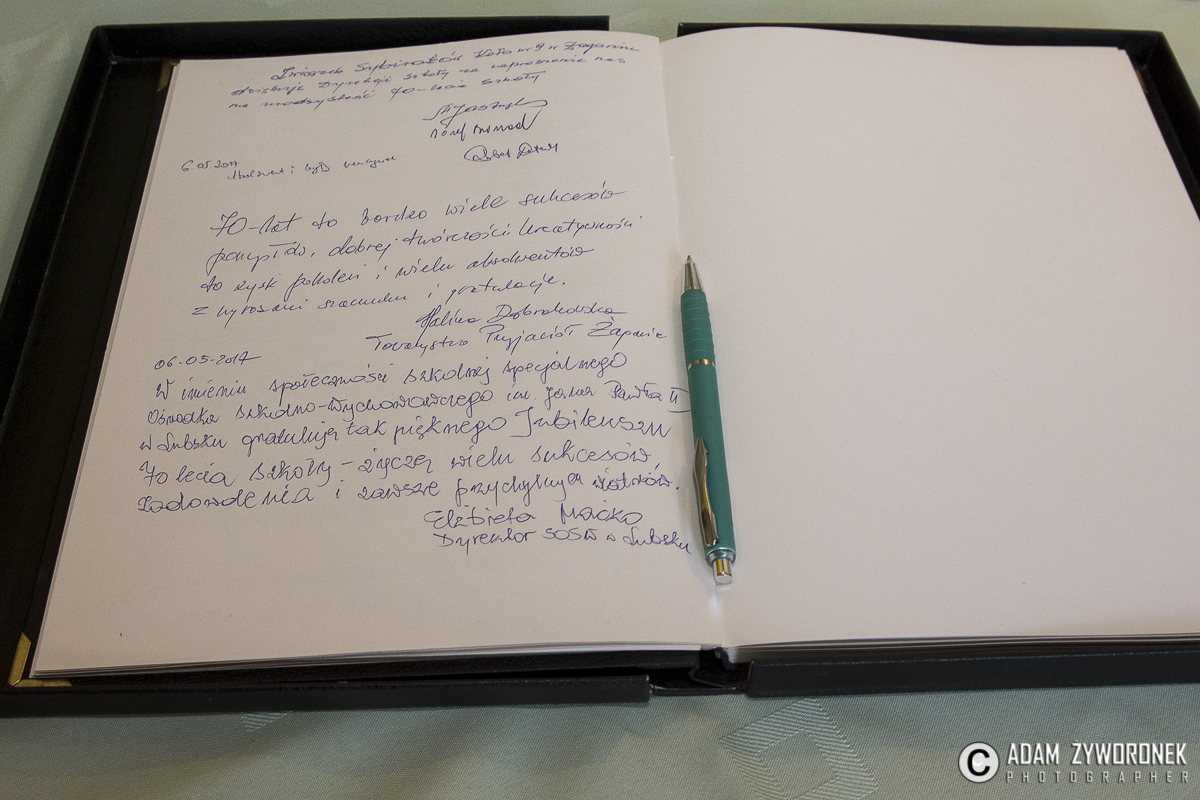 Związek Sybiraków Koło nr 9 w Żaganiu
dziękuje Dyrekcji Szkoły za zaproszenie nas
na uroczystość 70-lecia szkoły
Józef
6.05.2017
70-lat to bardzo wiele sukcesów
pomysłów, dobrej twórczości, kreatywności
to pokoleń i wielu absolwentów
z wyrazami szacunku i gratulacje.
Halina Dobrakowska
Towarzystwo Przyjaciół Żagania
06-05-2017
W imieniu społeczności szkolnej specjalnego
Ośrodka szkolno-wychowawczego im. Jana Pawła II
w Lubsku gratuluję tak pięknego Jubileuszu
70 lecia szkoły - życzę wielu sukcesów,
zadowolenia i zawsze przychylnych wiatrów.
Elżbieta Maćko
Dyrektor SOSW w Lubsku
© ADAM ŻYWORONEK
PHOTOGRAPHER